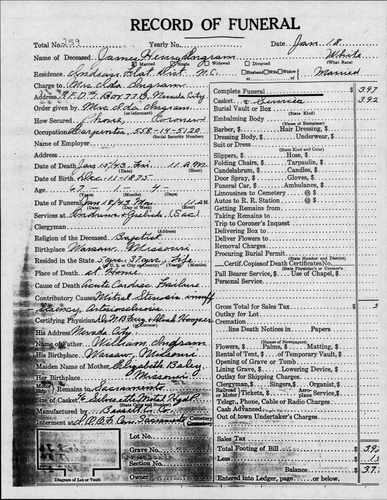 RECORD OF FUNERAL
Total No. 299 Yearly No. Date Jan. 18
Name of Deceased James Henry Ingram White
Married Single Widowed Divorced (What Race)
Residence Indian Flat Dist. N.C. Husband Wife Widow Married
Charge to Mrs Ida Ingram
Address R.F.D. #1 Box 77B, Nevada City
Order given by Mrs. Ida Ingram
How Secured Phone, Coroner
Occupation Carpenter 558-14-5120
(Social Security Number)
Name of Employer
Address
Date of Death Jan 15/43 Fri. 11 A.M.
Date of Birth Dec-11-1875
Age 67 - 1 - 4
Date of Funeral Jan 18/43 Mon 11 A.M.
Services at (Sac)
Clergyman
Religion of the Deceased Baptist
Birthplace Warsaw, Missouri
Resided in the State Life
Place of Death At Home
Cause of Death Acute Cardiac Failure
Contributory Cause Mitral Stenosis
Arteriosclerosis
Certifying Physician
His Address Nevada City
Name of Father William Ingram
His Birthplace Warsaw, Missouri
Maiden Name of Mother Elizabeth
Her Birthplace Missouri
Remains to Sacramento
Size of Casket Silverette Metal
Manufactured by
Interment at I.O.O.F. Cem. Sacramento Cemetery
Lot No.
Grave No.
Section No.
Owner
Diagram of Lot or Vault
Complete Funeral $ 397
Casket & Service $ 392
Burial Vault or Box
(Name of Manufacturer)
Embalming Body
(Name of Embalmer)
Barber, $ Hair Dressing, $
Dressing Body, $ Underwear, $
Suit or Dress
(State Kind and Color)
Slippers, $ Hose, $
Folding Chairs, $ Tarpaulin, $
Candelabrum, $ Candles, $
Door Spray, $ Gloves, $
Funeral Car, $ Ambulance, $
Limousines to Cemetery @ $
Autos to R. R. Station @ $
Getting Remains from
Taking Remains to
Trip to Coroner's Inquest
Delivering Box to
Deliver Flowers to
Removal Charges
Procuring Burial Permit
Certif. Copies of Death Certificates, $
Pall Bearer Service, $ Use of Chapel, $
Personal Service
Gross Total for Sales Tax $
Outlay for Lot
Cremation
line Death Notices in Papers
(Names of Newspapers)
Flowers, $ Palms, $ Matting, $
Rental of Tent, $ of Temporary Vault, $
Opening of Grave or Tomb
Lining Grave, $ Lowering Device, $
Outlay for Shipping Charges
Clergyman, $ Singers, $ Organist, $
Telegr., Phone, Cable or Radio Charges
Cash Advanced
Out of town Undertaker's Charges
Sales Tax
Total Footing of Bill $
Less $
Balance $
Entered into Ledger, page or below.